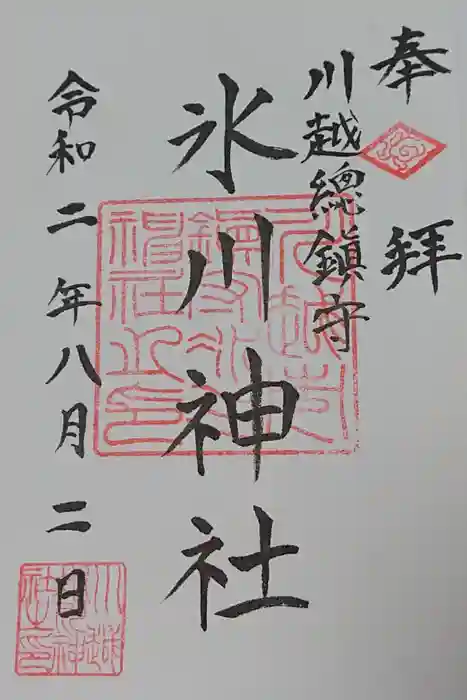 奉拝
川越總鎮守
氷川神社
令和二年八月二日